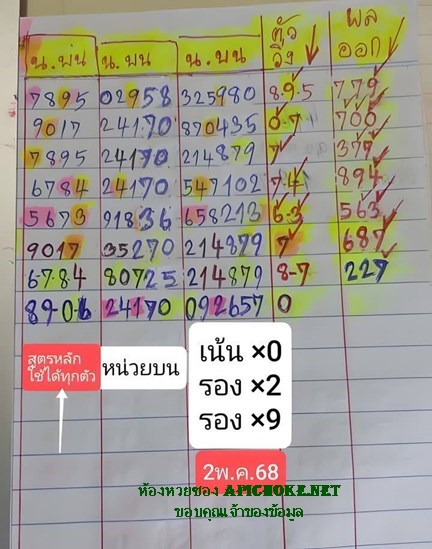 น.บน น.บน น.บน ตัววิ่ง ผลออก
7895 02958 325980 89.5 779
9017 24170 870435 0.7 700
7895 24170 214879 7 377
6784 24170 547102 7.4 894
5673 91836 658213 6.3 563
9017 35270 214879 7 687
6-7-84 80725 214879 8-7 227
89-0-6 24170 092657 0
สูตรหลัก
ใช้ได้ทุกตัว
หน่วยบน
เน้น ×0
รอง ×2
รอง ×9
2พ.ค.68
ห้องหวยซอง APICHOKE.NET
ขอบคุณเจ้าของข้อมูล